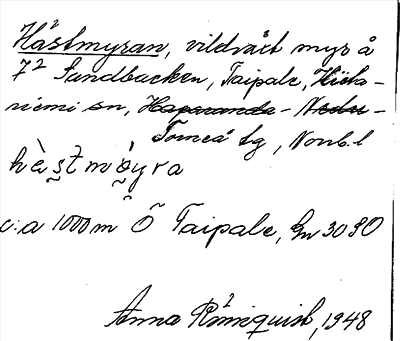 Hästmyran, vildvåt myr å
7² Sandbacken, Taipale, Hieta-
niemi sn, Haparanda - Nedre -
Torneå tg, Norrb.l
hæ̀s̬t mờyra
c:a 1000 m Ö Taipale, Gn 3080
Anna Rönnquist, 1948